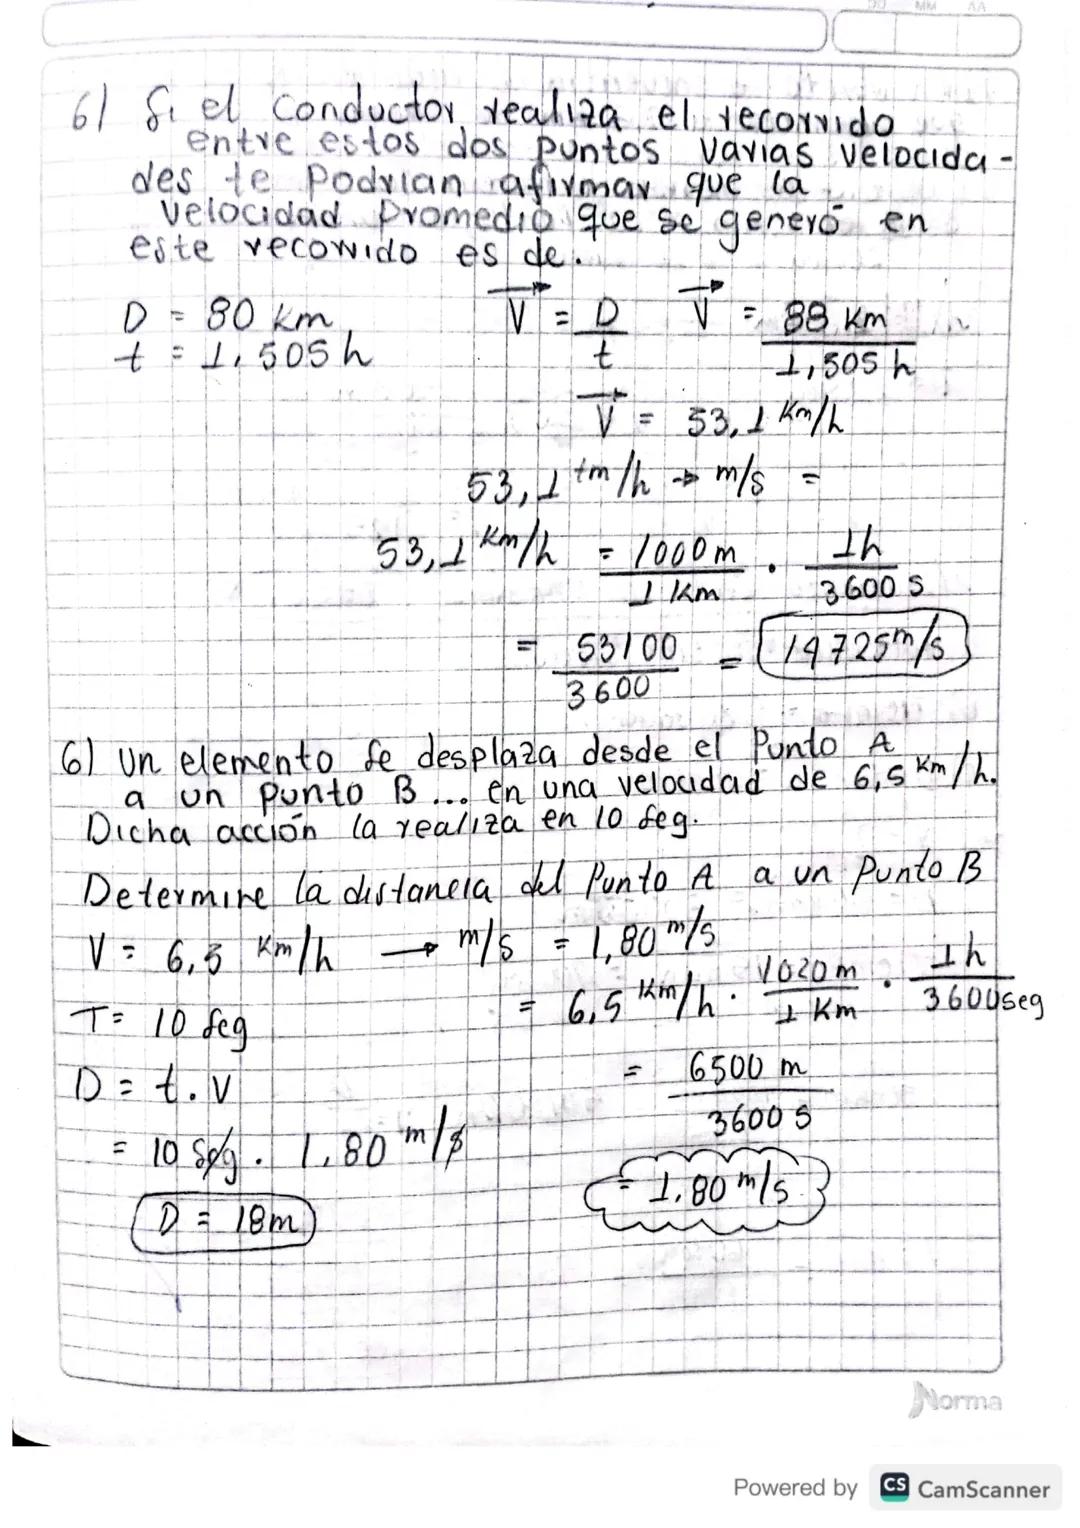 DD MM AA
6) Si el conductor realiza el recorrido
entre estos dos puntos varias velocida-
des te podrian afirmar que la
velocidad promedio que se generó en
este recorrido es de.
D = 80 km V = D/t V = 88 Km / 1,505 h
t = 1,505 h
V = 53,1 Km/h
53,1 km/h → m/s =
53,1 Km/h = 1000 m / 1 Km . 1h / 3600 s
= 53100 / 3600 = 14725 m/s
6) Un elemento se desplaza desde el Punto A
a un punto B ... en una velocidad de 6,5 Km/h.
Dicha acción la realiza en 10 seg.
Determine la distancia del Punto A a un Punto B
V = 6,5 Km/h → m/s = 1,80 m/s
T = 10 seg = 6,5 Km/h . 1020 m / 1 Km . 1h / 3600seg
D = t . V = 6500 m / 3600 s
= 10 seg . 1,80 m/s = 1,80 m/s
D = 18m
Norma
Powered by CS CamScanner